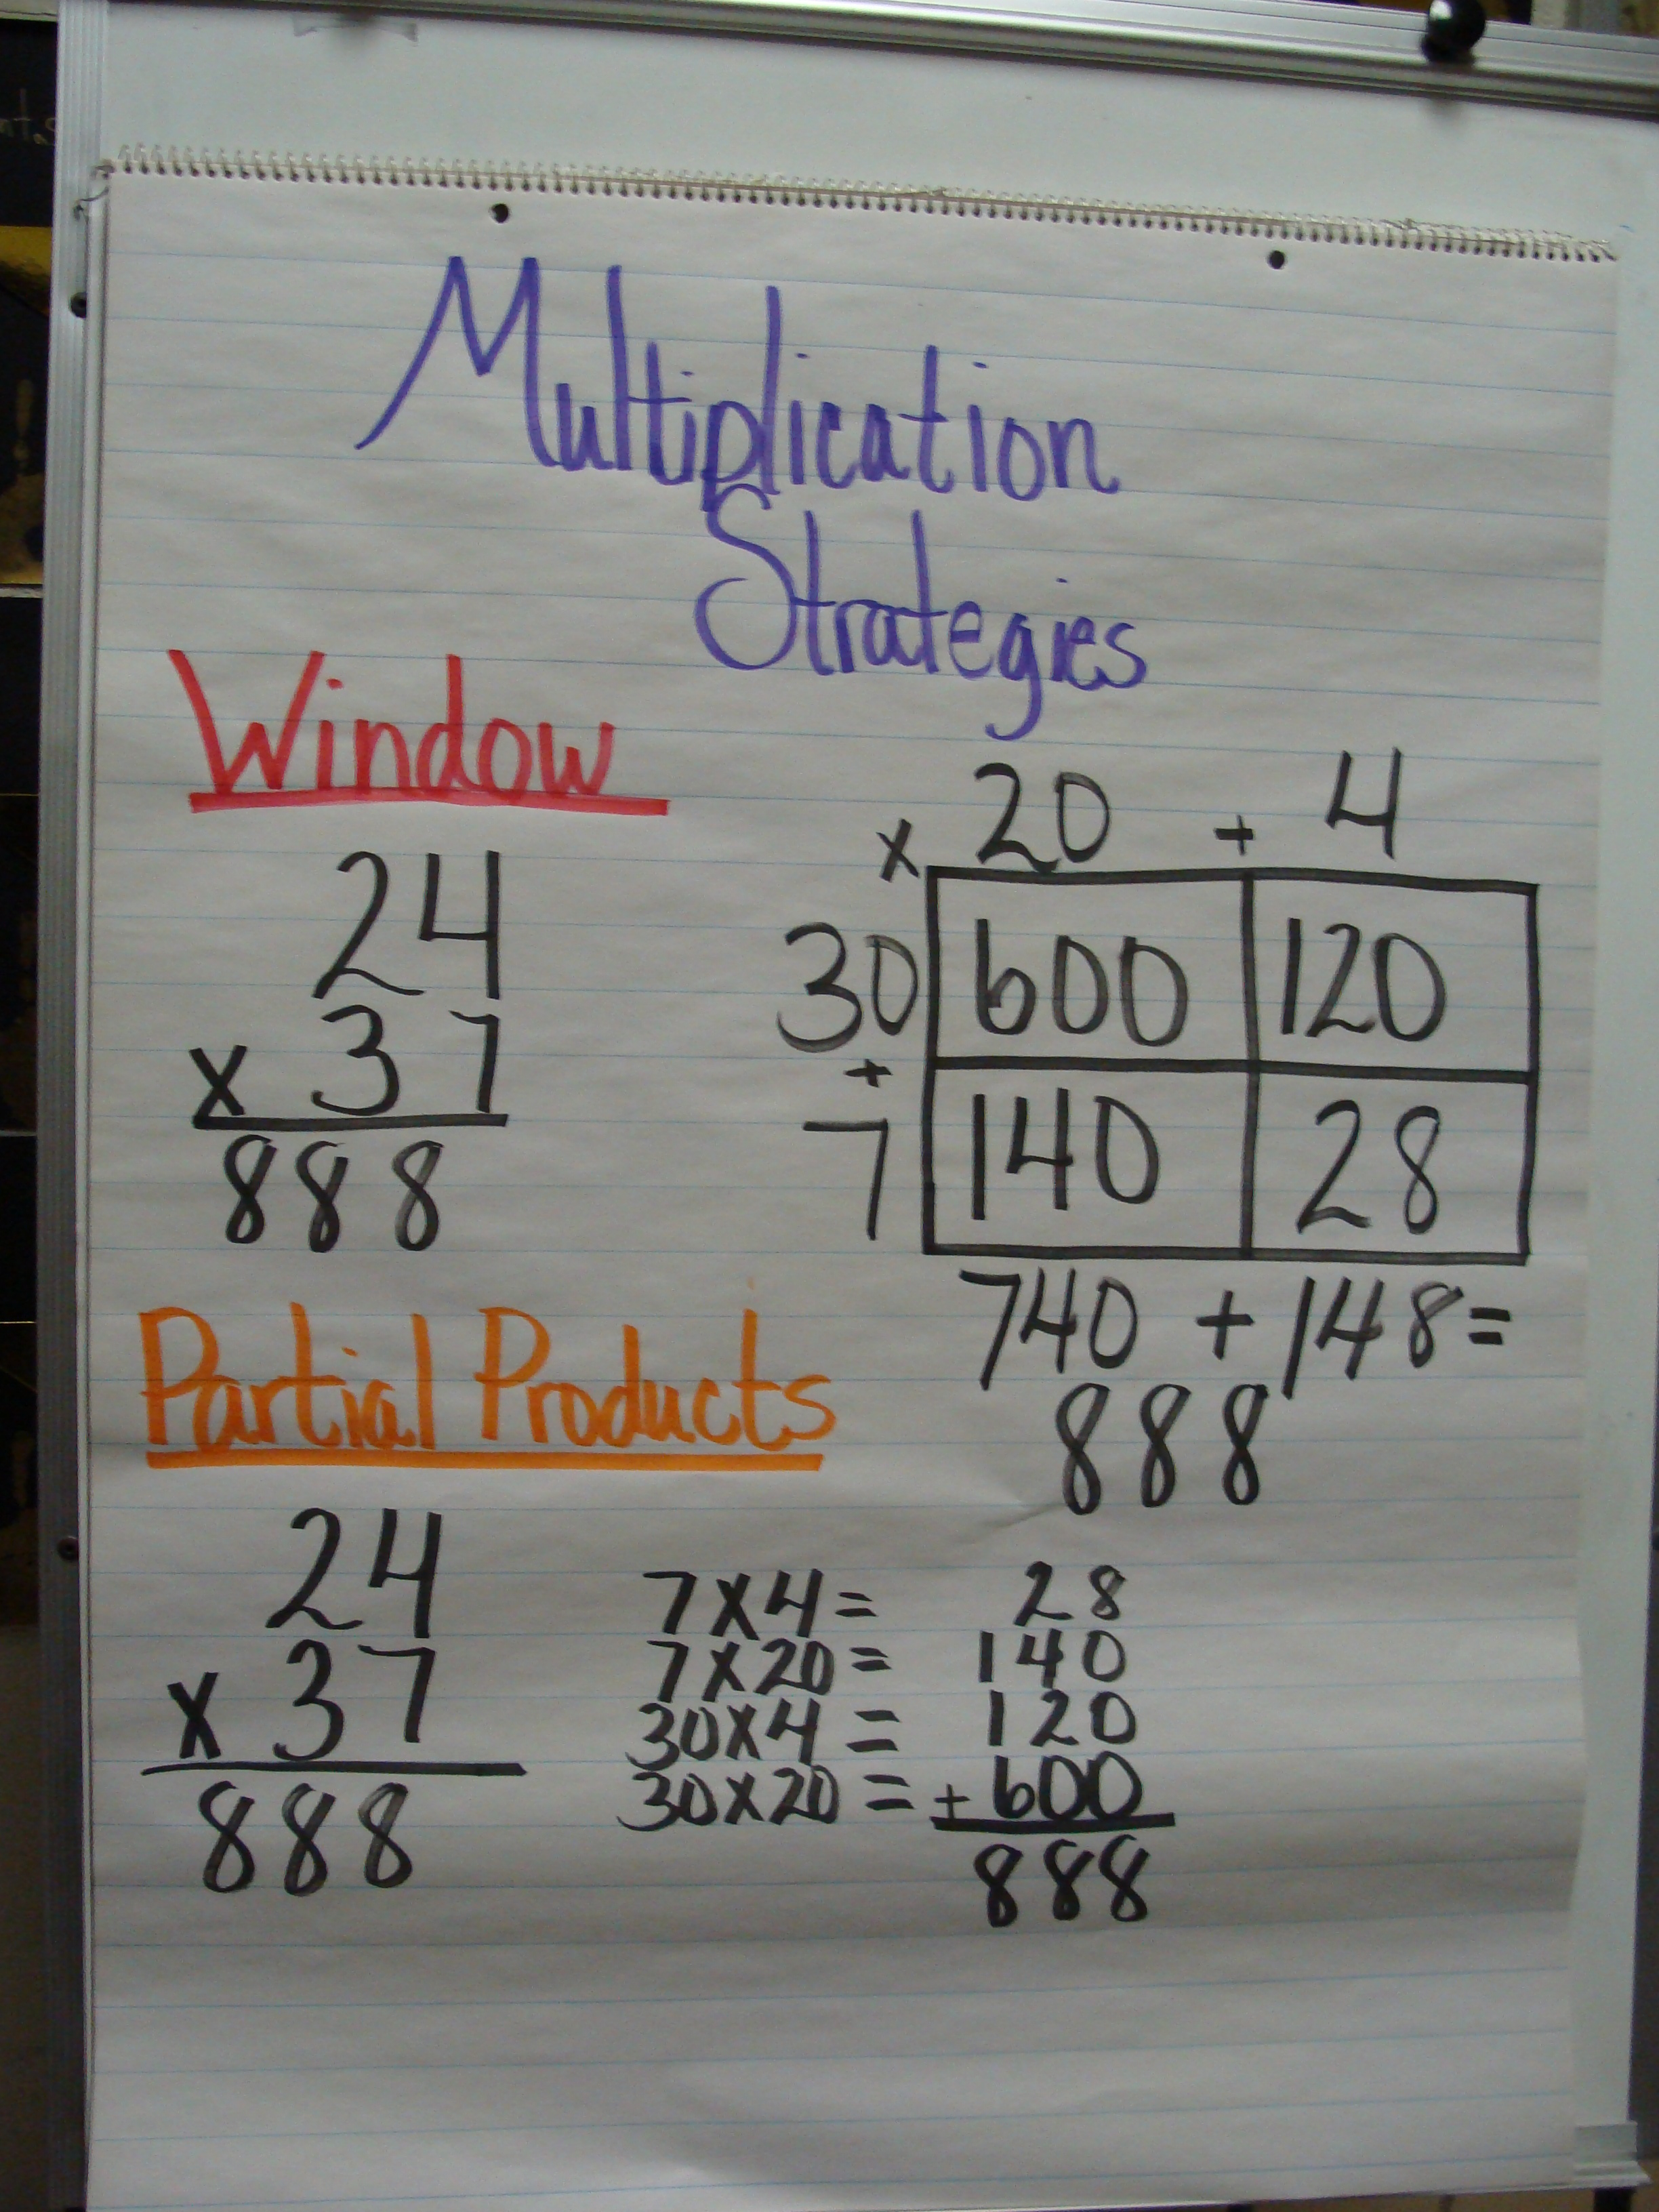 Multiplication
Strategies
Window
24
x 37
888
x 20 + 4
30 600 120
+
7 140 28
740 + 148 =
888
Partial Products
24
x 37
888
7x4= 28
7x20= 140
30x4= 120
30x20= +600
888